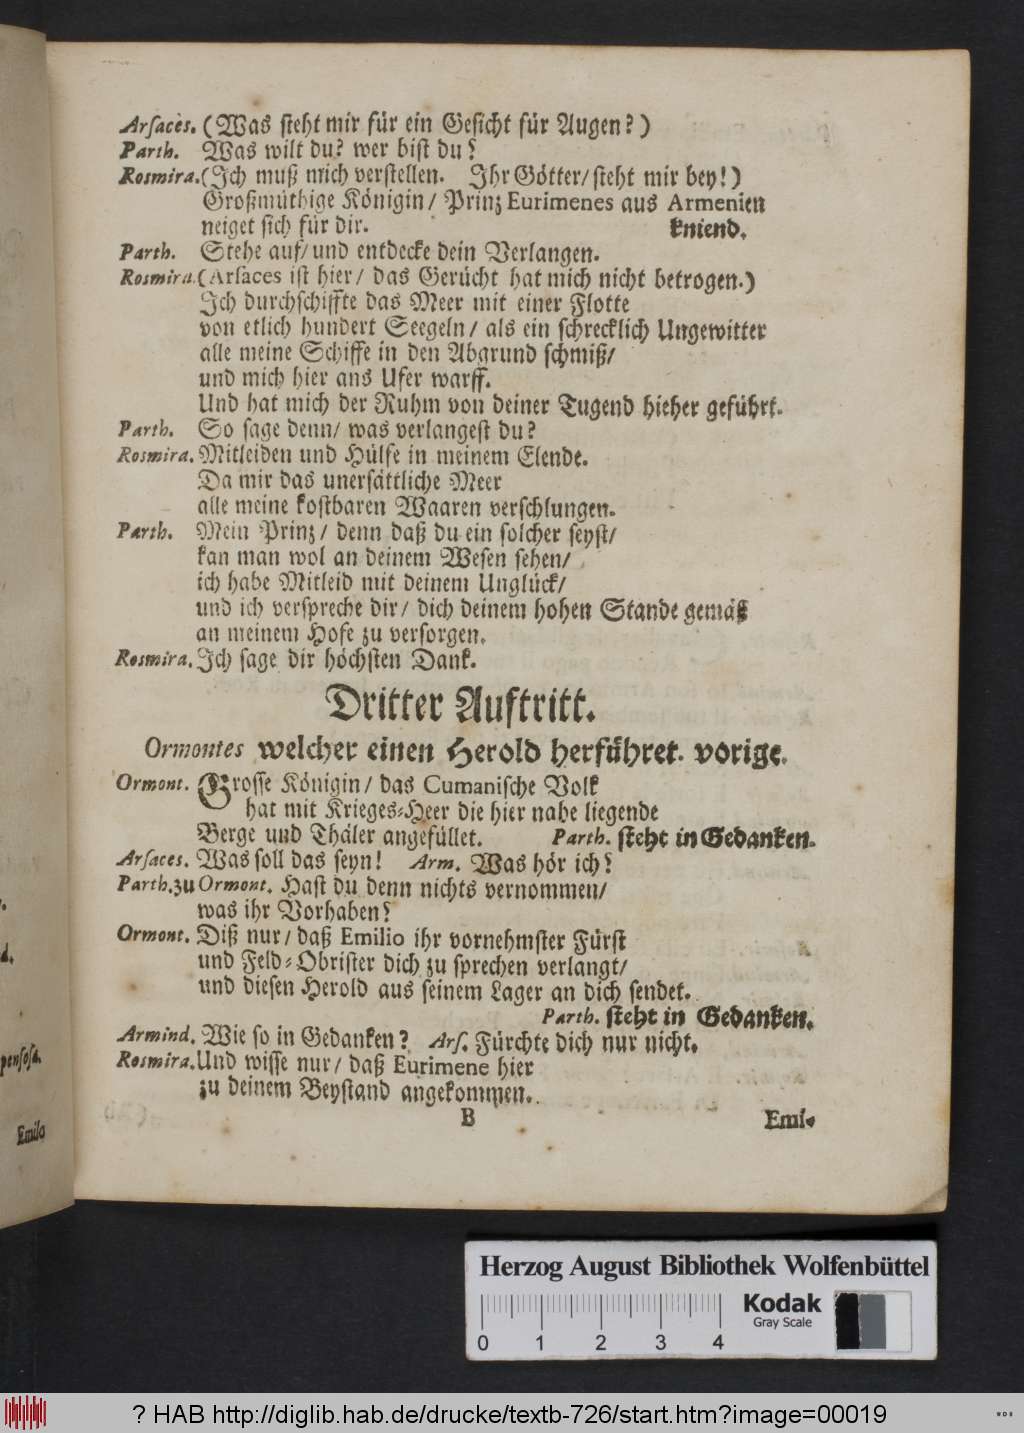 Arsaces. (Was steht mir für ein Gesicht für Augen?)
Parth. Was wilt du? wer bist du?
Rosmira. (Ich muß mich verstellen. Ihr Götter/ steht mir bey!)
Großmüthige Königin/ Prinz Eurimenes aus Armenien
neiget sich für dir. kniend.
Parth. Stehe auf/ und entdecke dein Verlangen.
Rosmira. (Arsaces ist hier/ das Gerücht hat mich nicht betrogen.)
Ich durchschiffte das Meer mit einer Flotte
von etlich hundert Seegeln/ als ein schrecklich Ungewitter
alle meine Schiffe in den Abgrund schmiß/
und mich hier ans Ufer warff.
Und hat mich der Ruhm von deiner Tugend hieher geführt.
Parth. So sage denn/ was verlangest du?
Rosmira. Mitleiden und Hülfe in meinem Elende.
Da mir das unersättliche Meer
alle meine kostbaren Waaren verschlungen.
Parth. Mein Prinz/ denn daß du ein solcher seyst/
kan man wol an deinem Wesen sehen/
ich habe Mitleid mit deinem Unglück/
und ich verspreche dir/ dich deinem hohen Stande gemäß
an meinem Hofe zu versorgen.
Rosmira. Ich sage dir höchsten Dank.
Dritter Auftritt.
Ormontes welcher einen Herold herführet. vorige.
Ormont. Grosse Königin/ das Cumanische Volk
hat mit Krieges-Heer die hier nahe liegende
Berge und Thäler angefüllet. Parth. steht in Gedanken.
Arsaces. Was soll das seyn! Arm. Was hör ich?
Parth. zu Ormont. Hast du denn nichts vernommen/
was ihr Vorhaben?
Ormont. Diß nur/ daß Emilio ihr vornehmster Fürst
und Feld-Obrister dich zu sprechen verlangt/
und diesen Herold aus seinem Lager an dich sendet.
Parth. steht in Gedanken.
Armind. Wie so in Gedanken? Ars. Fürchte dich nur nicht.
Rosmira. Und wisse nur/ daß Eurimene hier
zu deinem Beystand angekommen.
B Emi-
d.
pensosa.
Emilo
Herzog August Bibliothek Wolfenbüttel
0 1 2 3 4
Kodak
Gray Scale
? HAB http://diglib.hab.de/drucke/textb-726/start.htm?image=00019